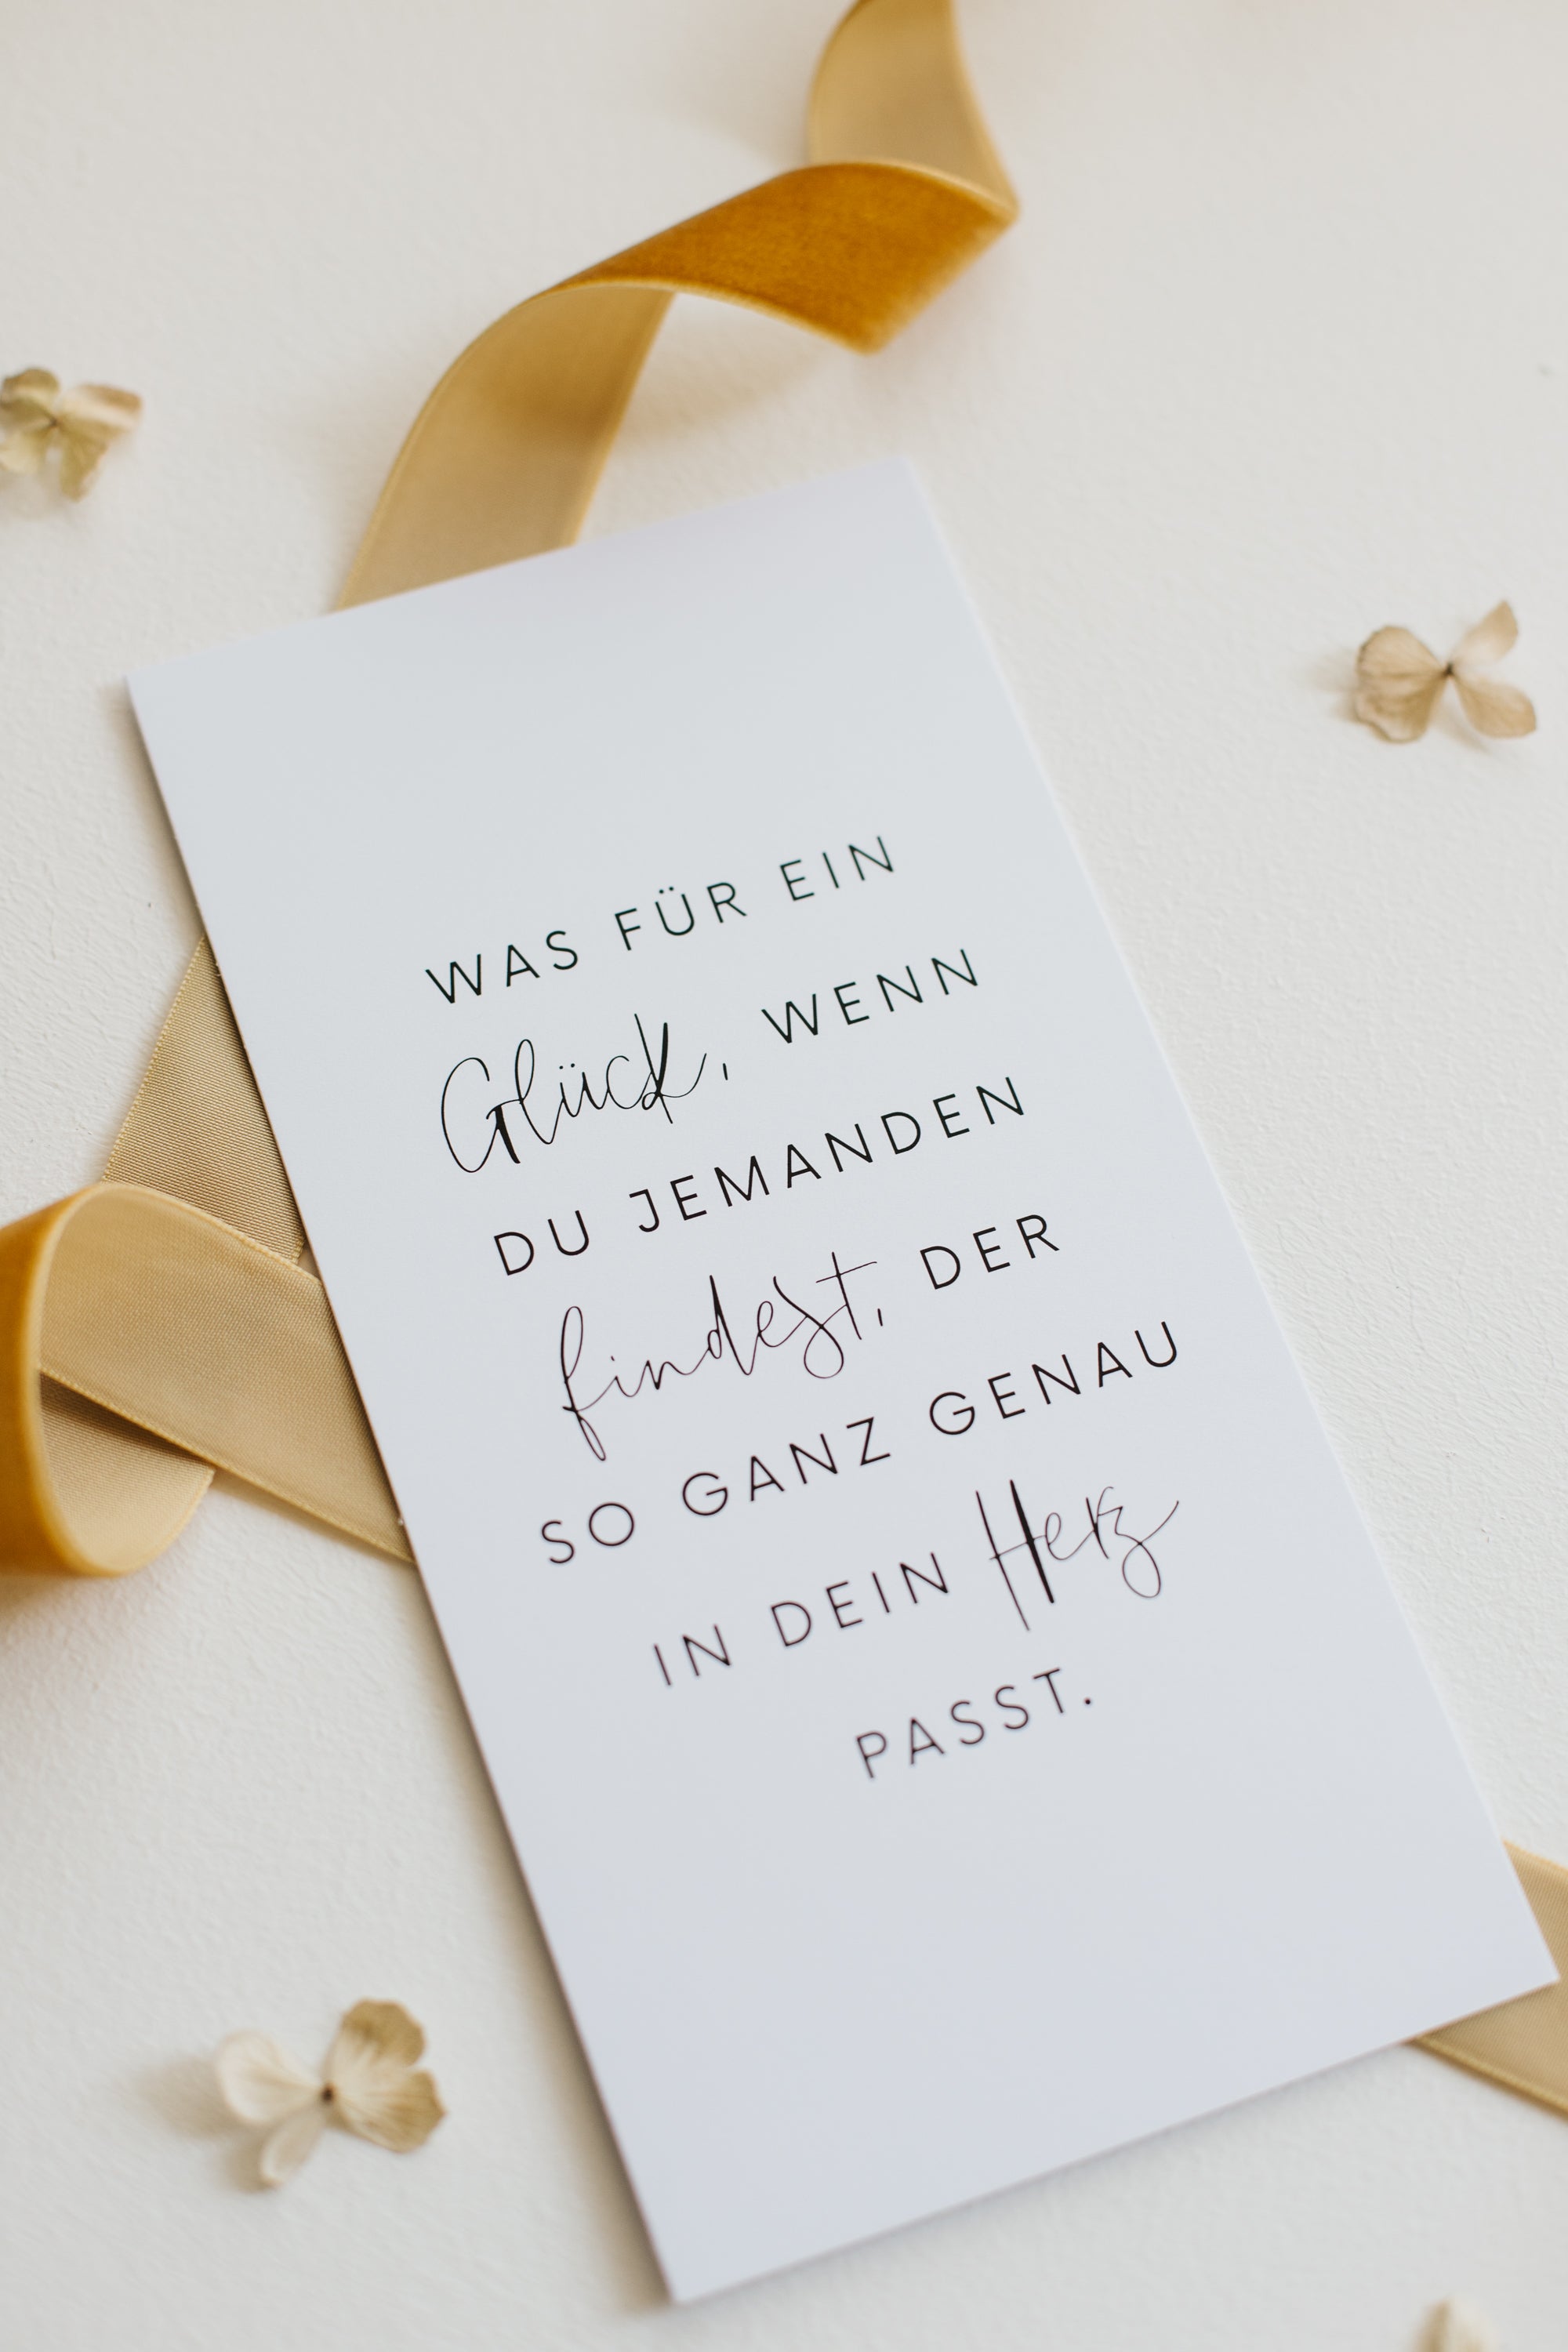 WAS FÜR EIN
Glück, WENN
DU JEMANDEN
findest, DER
SO GANZ GENAU
IN DEIN Herz
PASST.